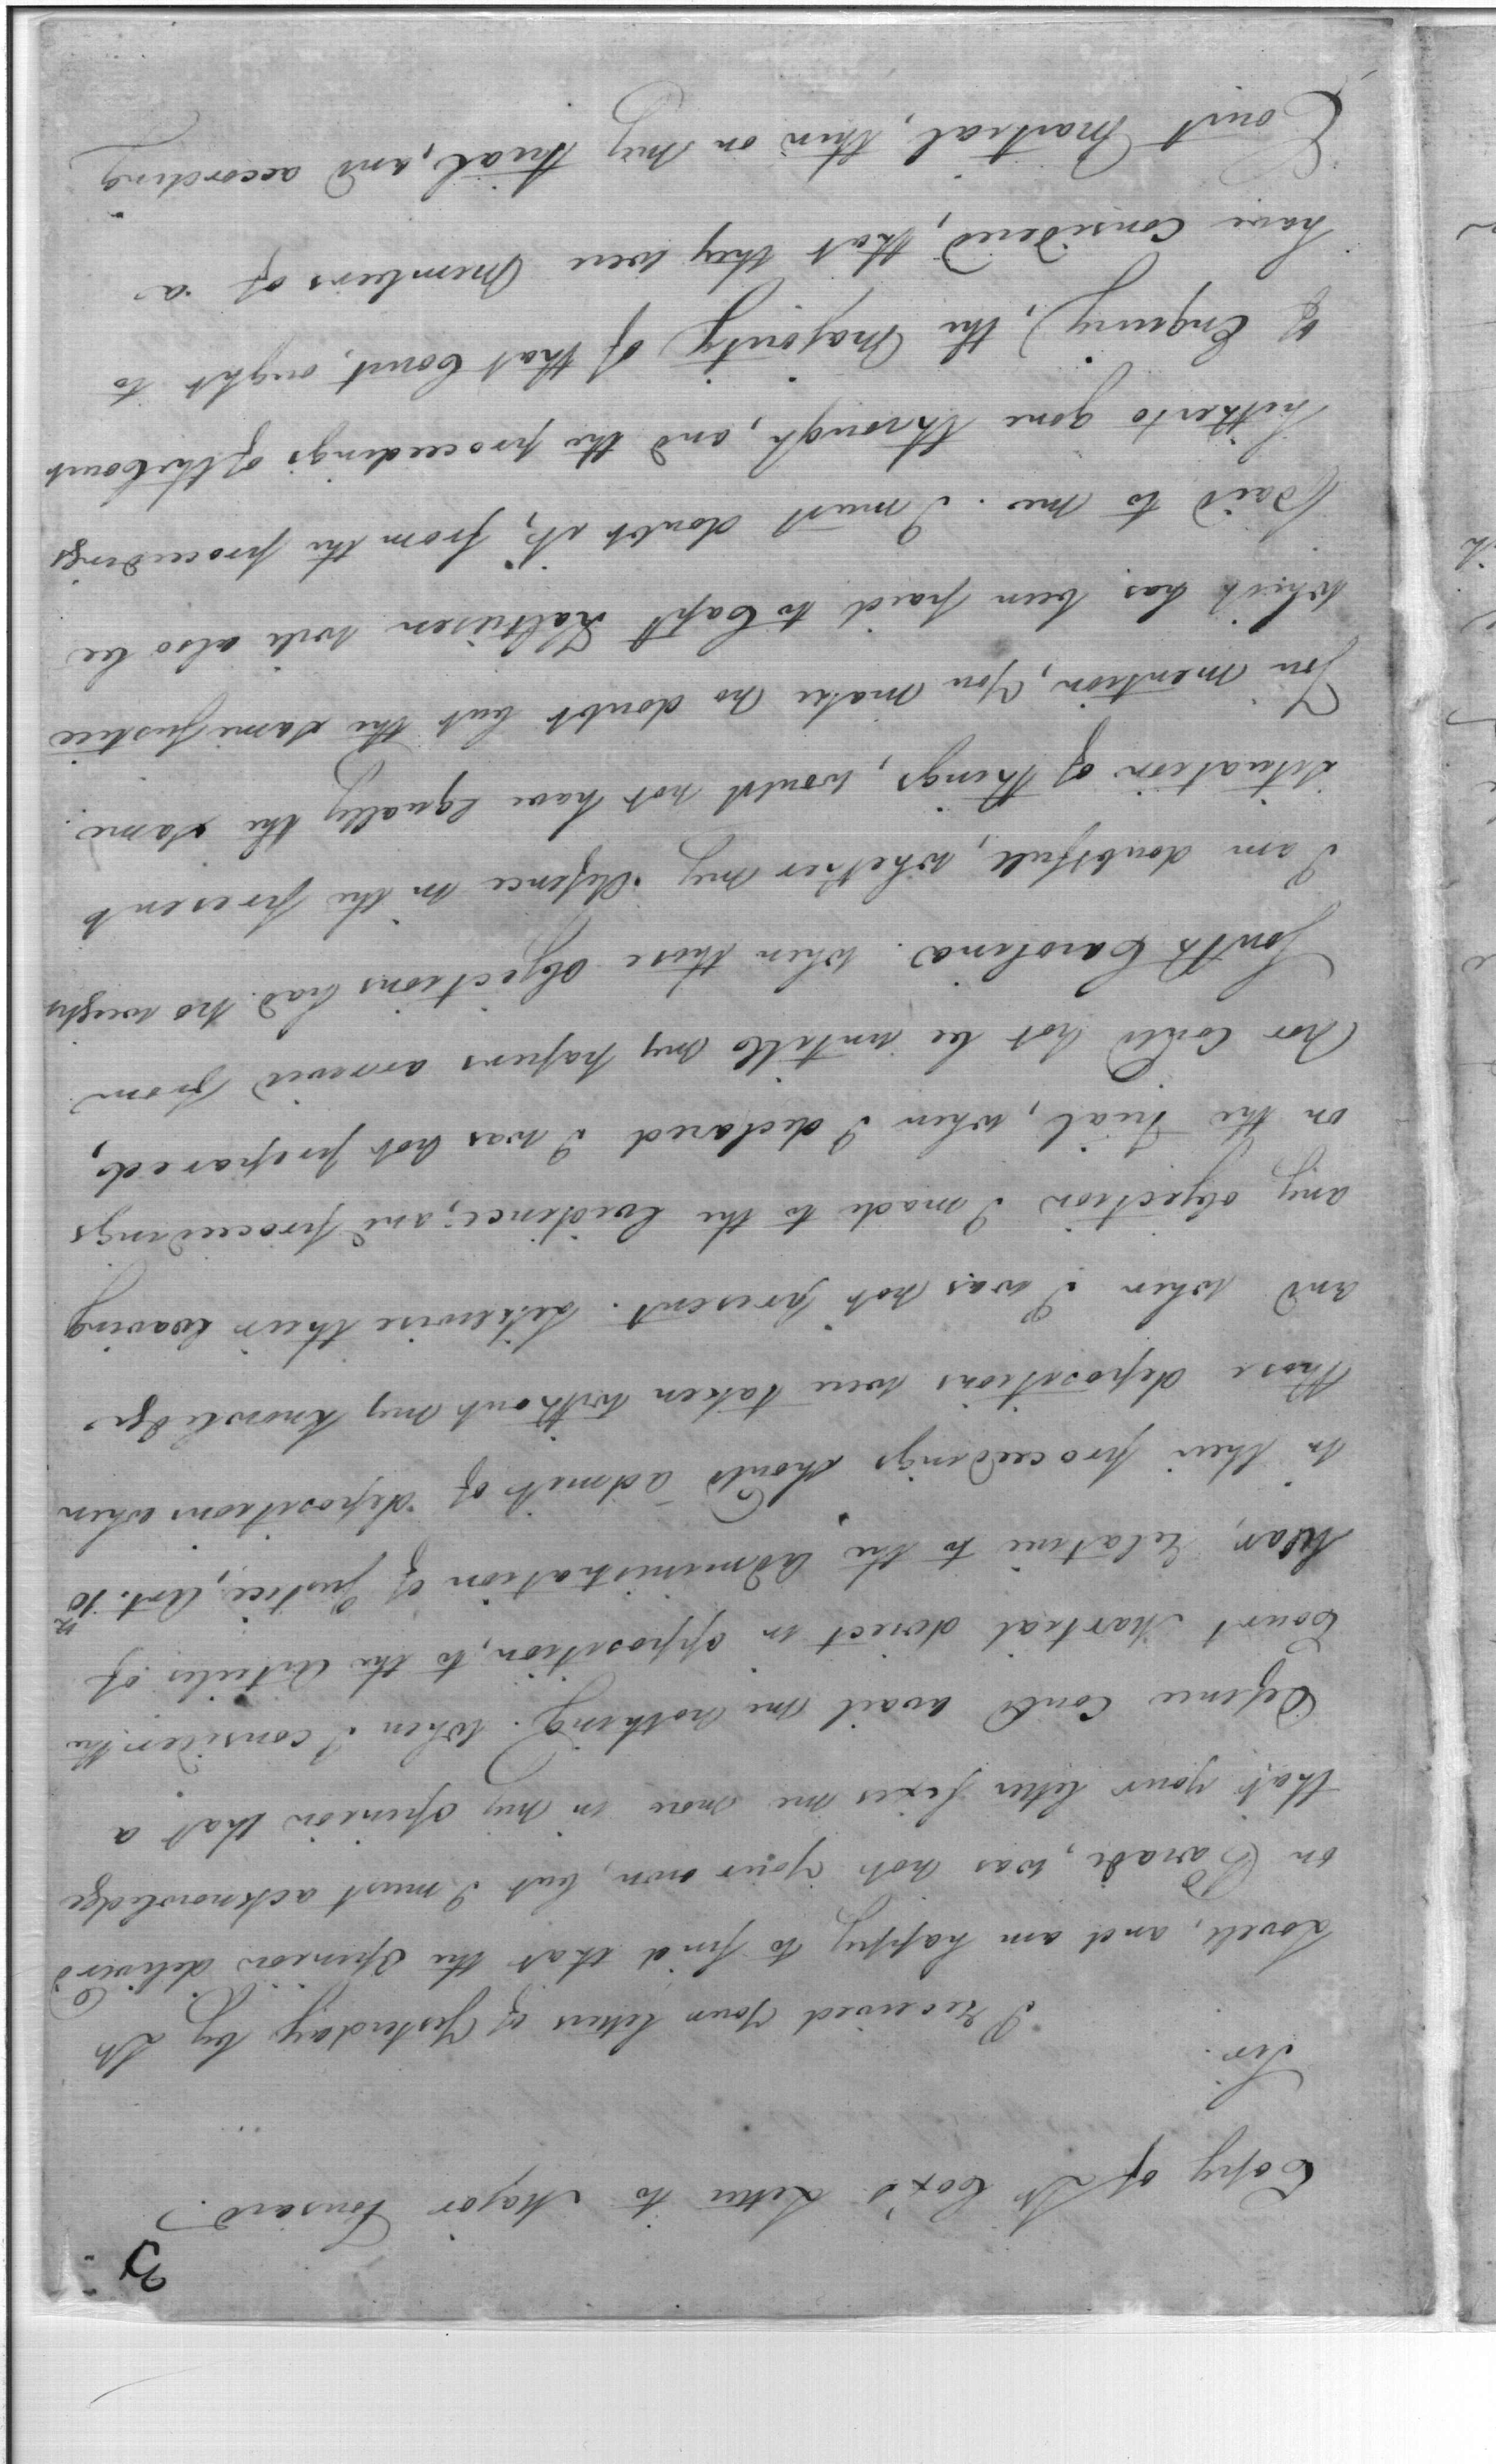 3
Copy of Lt Cox's Letter to Major Tousard.
Sir.
I received your letter of Yesterday by Lt
Lovell, and am happy to find that the Opinion deliver'd
on Parade, was not your own, but I must acknowledge
that your letter fixes me more in my Opinion that a
Defence Could avail me nothing. When I consider the
Court Martial direct in opposition, to the Articles of
War, relative to the Administration of Justice, Art. 10
in their proceedings should admit of depositions when
those depositions were taken without my knowledge
and when I was not present. Likewise their waving
any objection I made to the Evidence, and proceedings
on the trial, when I declared I was not prepared,
Nor Could not be untill my papers arrived from
South Carolina. When those objections had no weight
I am doubtfull, whether my defence in the present
situation of things, would not have Equally the same.
You mention, You make no doubt but the same Justice
which has been paid to Capt Kalteisen will also be
paid to me. I must doubt it, from the proceedings
hitherto gone through, and the proceedings of the Court
of Enquiry, the Majority of that Court, ought to
have Considered, that they were Members of a
Court Martial, then on my trial, and according